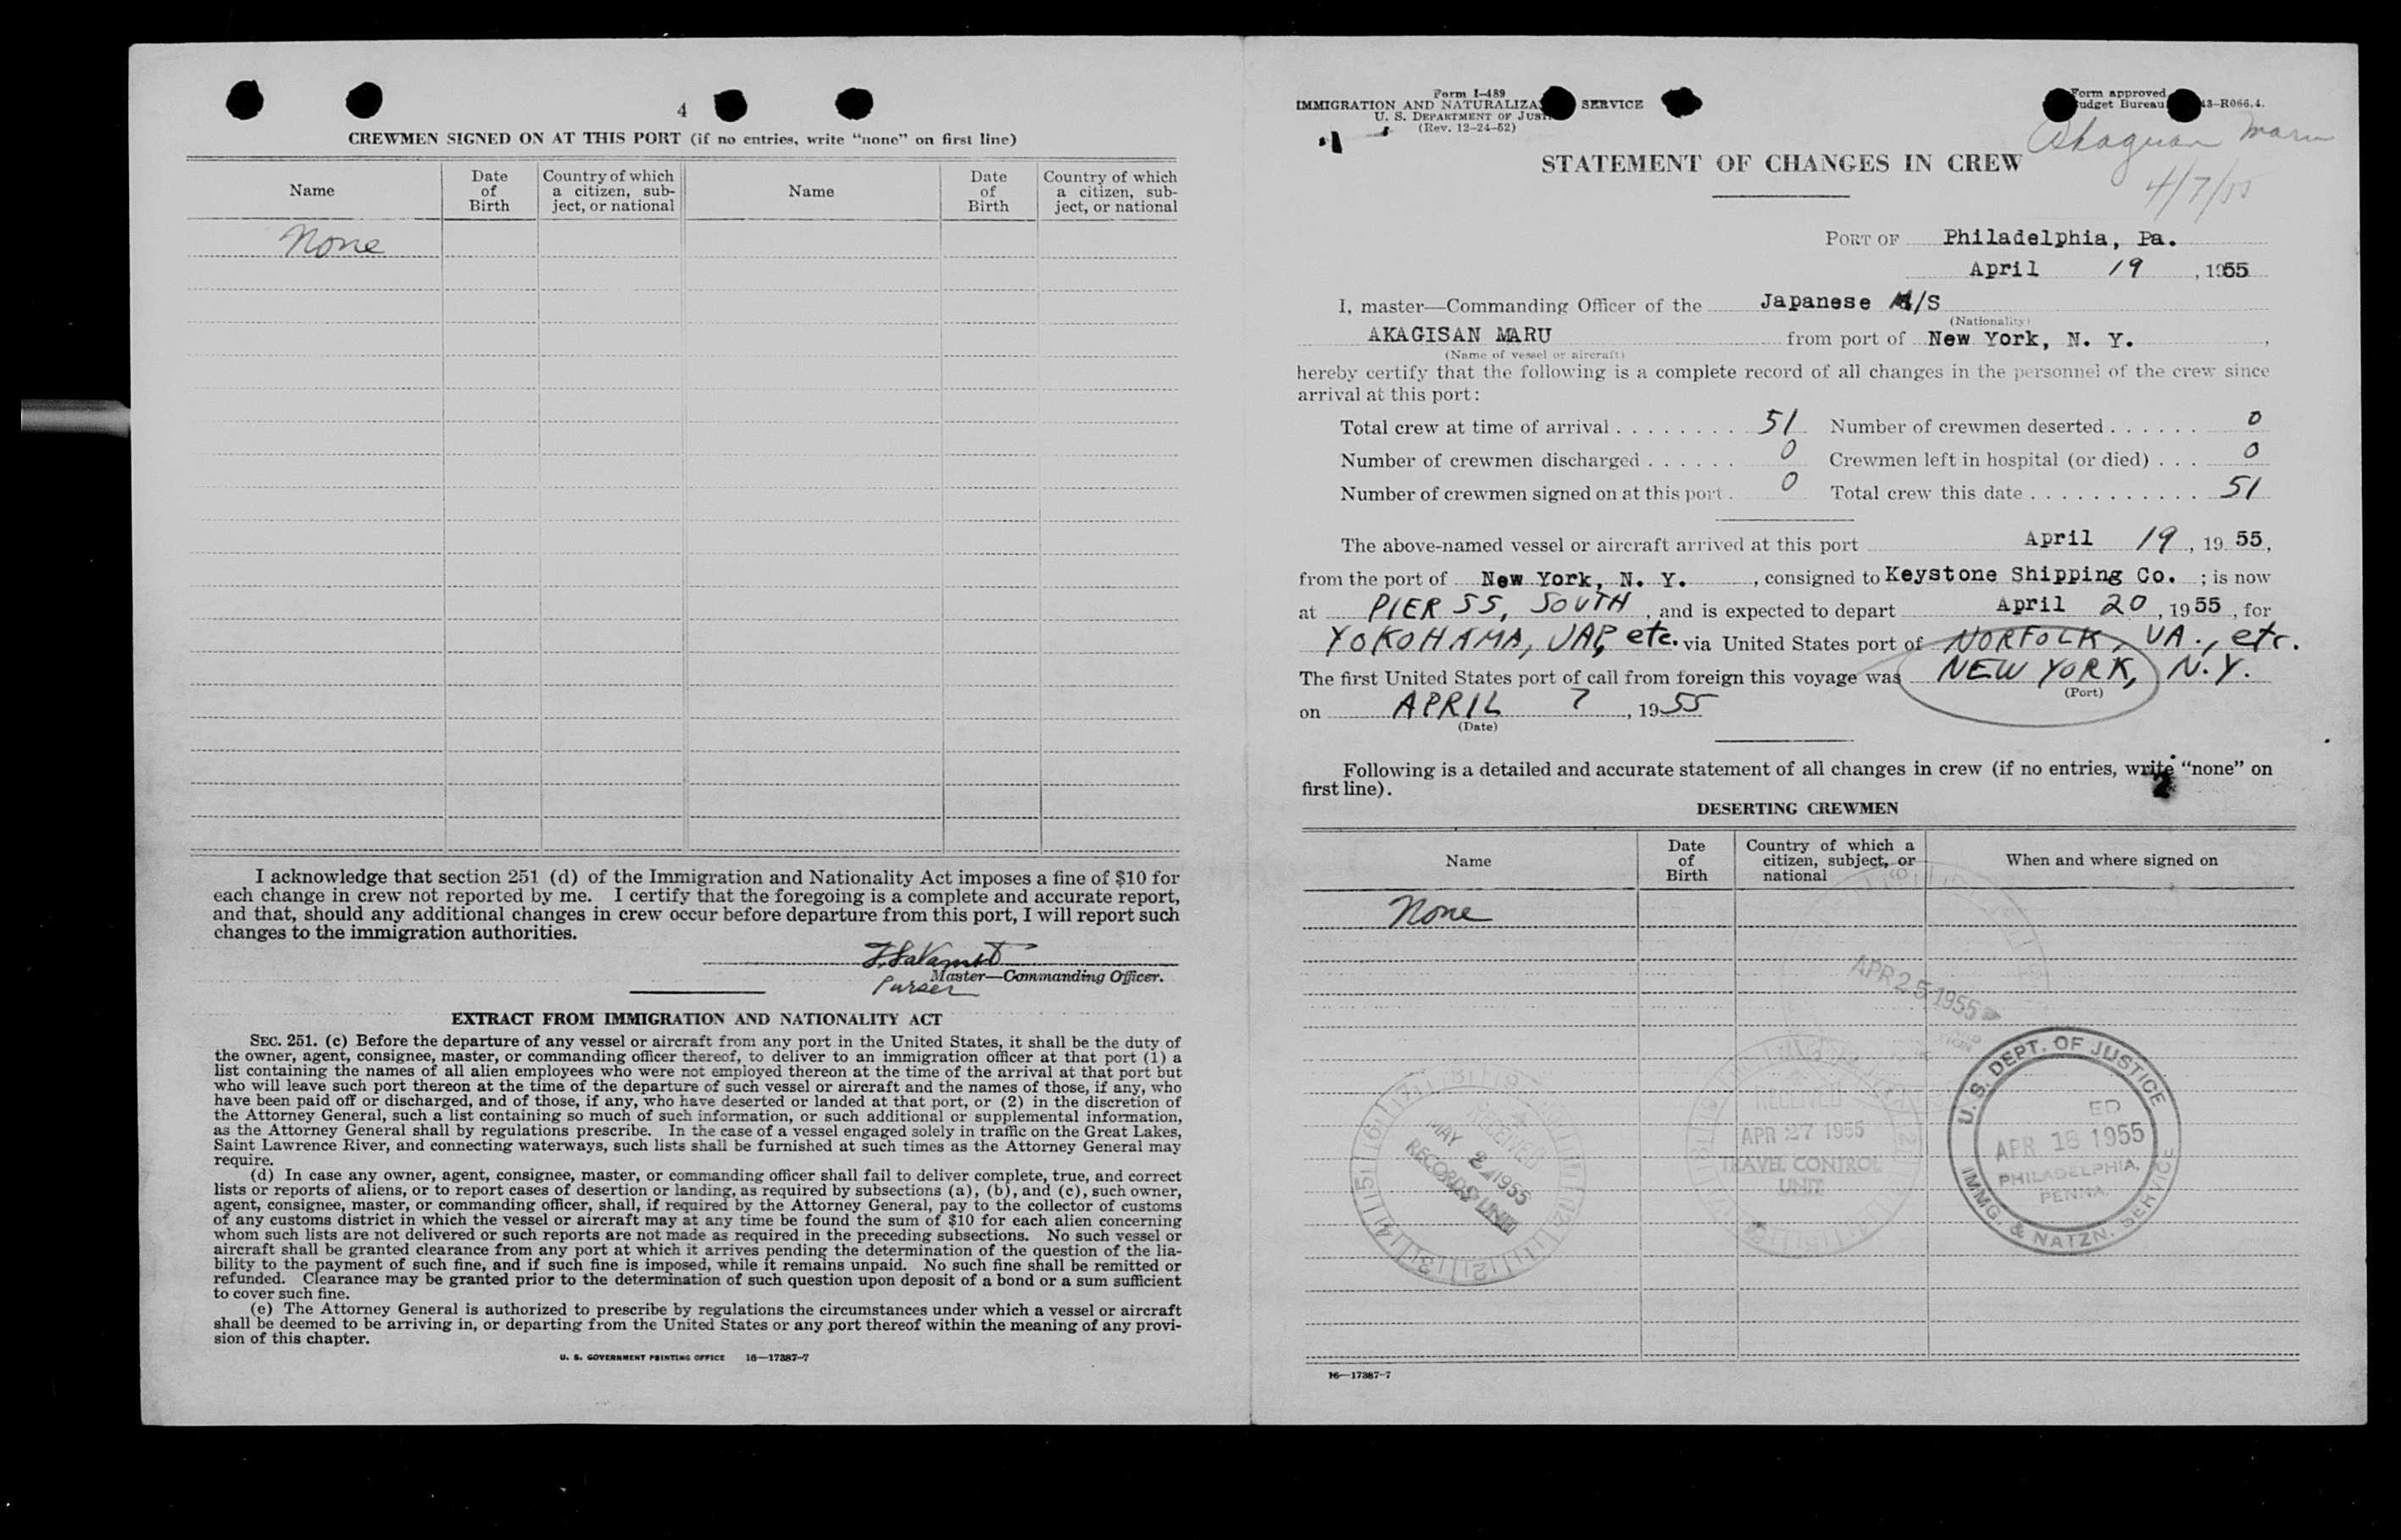 4
CREWMEN SIGNED ON AT THIS PORT (if no entries, write “none” on first line)
Name
Date of Birth
Country of which a citizen, sub-ject, or national
Name
Date of Birth
Country of which a citizen, sub-ject, or national
None
I acknowledge that section 251 (d) of the Immigration and Nationality Act imposes a fine of $10 for
each change in crew not reported by me. I certify that the foregoing is a complete and accurate report,
and that, should any additional changes in crew occur before departure from this port, I will report such
changes to the immigration authorities.
Master—Commanding Officer.
Purser
EXTRACT FROM IMMIGRATION AND NATIONALITY ACT
SEC. 251. (c) Before the departure of any vessel or aircraft from any port in the United States, it shall be the duty of
the owner, agent, consignee, master, or commanding officer thereof, to deliver to an immigration officer at that port (1) a
list containing the names of all alien employees who were not employed thereon at the time of the arrival at that port but
who will leave such port thereon at the time of the departure of such vessel or aircraft and the names of those, if any, who
have been paid off or discharged, and of those, if any, who have deserted or landed at that port, or (2) in the discretion of
the Attorney General, such a list containing so much of such information, or such additional or supplemental information,
as the Attorney General shall by regulations prescribe. In the case of a vessel engaged solely in traffic on the Great Lakes,
Saint Lawrence River, and connecting waterways, such lists shall be furnished at such times as the Attorney General may
require.
(d) In case any owner, agent, consignee, master, or commanding officer shall fail to deliver complete, true, and correct
lists or reports of aliens, or to report cases of desertion or landing, as required by subsections (a), (b), and (c), such owner,
agent, consignee, master, or commanding officer, shall, if required by the Attorney General, pay to the collector of customs
of any customs district in which the vessel or aircraft may at any time be found the sum of $10 for each alien concerning
whom such lists are not delivered or such reports are not made as required in the preceding subsections. No such vessel or
aircraft shall be granted clearance from any port at which it arrives pending the determination of the question of the lia-
bility to the payment of such fine, and if such fine is imposed, while it remains unpaid. No such fine shall be remitted or
refunded. Clearance may be granted prior to the determination of such question upon deposit of a bond or a sum sufficient
to cover such fine.
(e) The Attorney General is authorized to prescribe by regulations the circumstances under which a vessel or aircraft
shall be deemed to be arriving in, or departing from the United States or any port thereof within the meaning of any provi-
sion of this chapter.
U. S. GOVERNMENT PRINTING OFFICE 16—17387-7
Form I-489
IMMIGRATION AND NATURALIZA SERVICE
U. S. DEPARTMENT OF JUST
(Rev. 12-24-52)
Form approved
udget Bureau 43-R066.4.
Maru
4/7/55
STATEMENT OF CHANGES IN CREW
PORT OF Philadelphia, Pa.
April 19, 1955
I, master—Commanding Officer of the Japanese M/S
(Nationality)
AKAGISAN MARU from port of New York, N. Y.,
(Name of vessel or aircraft)
hereby certify that the following is a complete record of all changes in the personnel of the crew since
arrival at this port:
Total crew at time of arrival 51 Number of crewmen deserted 0
Number of crewmen discharged 0 Crewmen left in hospital (or died) 0
Number of crewmen signed on at this port 0 Total crew this date 51
The above-named vessel or aircraft arrived at this port April 19, 1955,
from the port of New York, N. Y., consigned to Keystone Shipping Co. ; is now
at PIER 55, SOUTH, and is expected to depart April 20, 1955, for
YOKOHAMA, JAP, etc. via United States port of NORFOLK, VA., etc.
The first United States port of call from foreign this voyage was NEW YORK, N.Y.
(Port)
on APRIL 7, 1955
(Date)
Following is a detailed and accurate statement of all changes in crew (if no entries, write “none” on
first line).
DESERTING CREWMEN
Name
Date of Birth
Country of which a citizen, subject, or national
When and where signed on
None
APR 25 1955
RECEIVED
MAY 2 1955
RECORDS UNIT
RECEIVED
APR 27 1955
TRAVEL CONTROL
UNIT
U. S. DEPT. OF JUSTICE
ED
APR 18 1955
PHILADELPHIA,
PENNA.
IMMG. & NATZN. SERVICE
16—17387-7